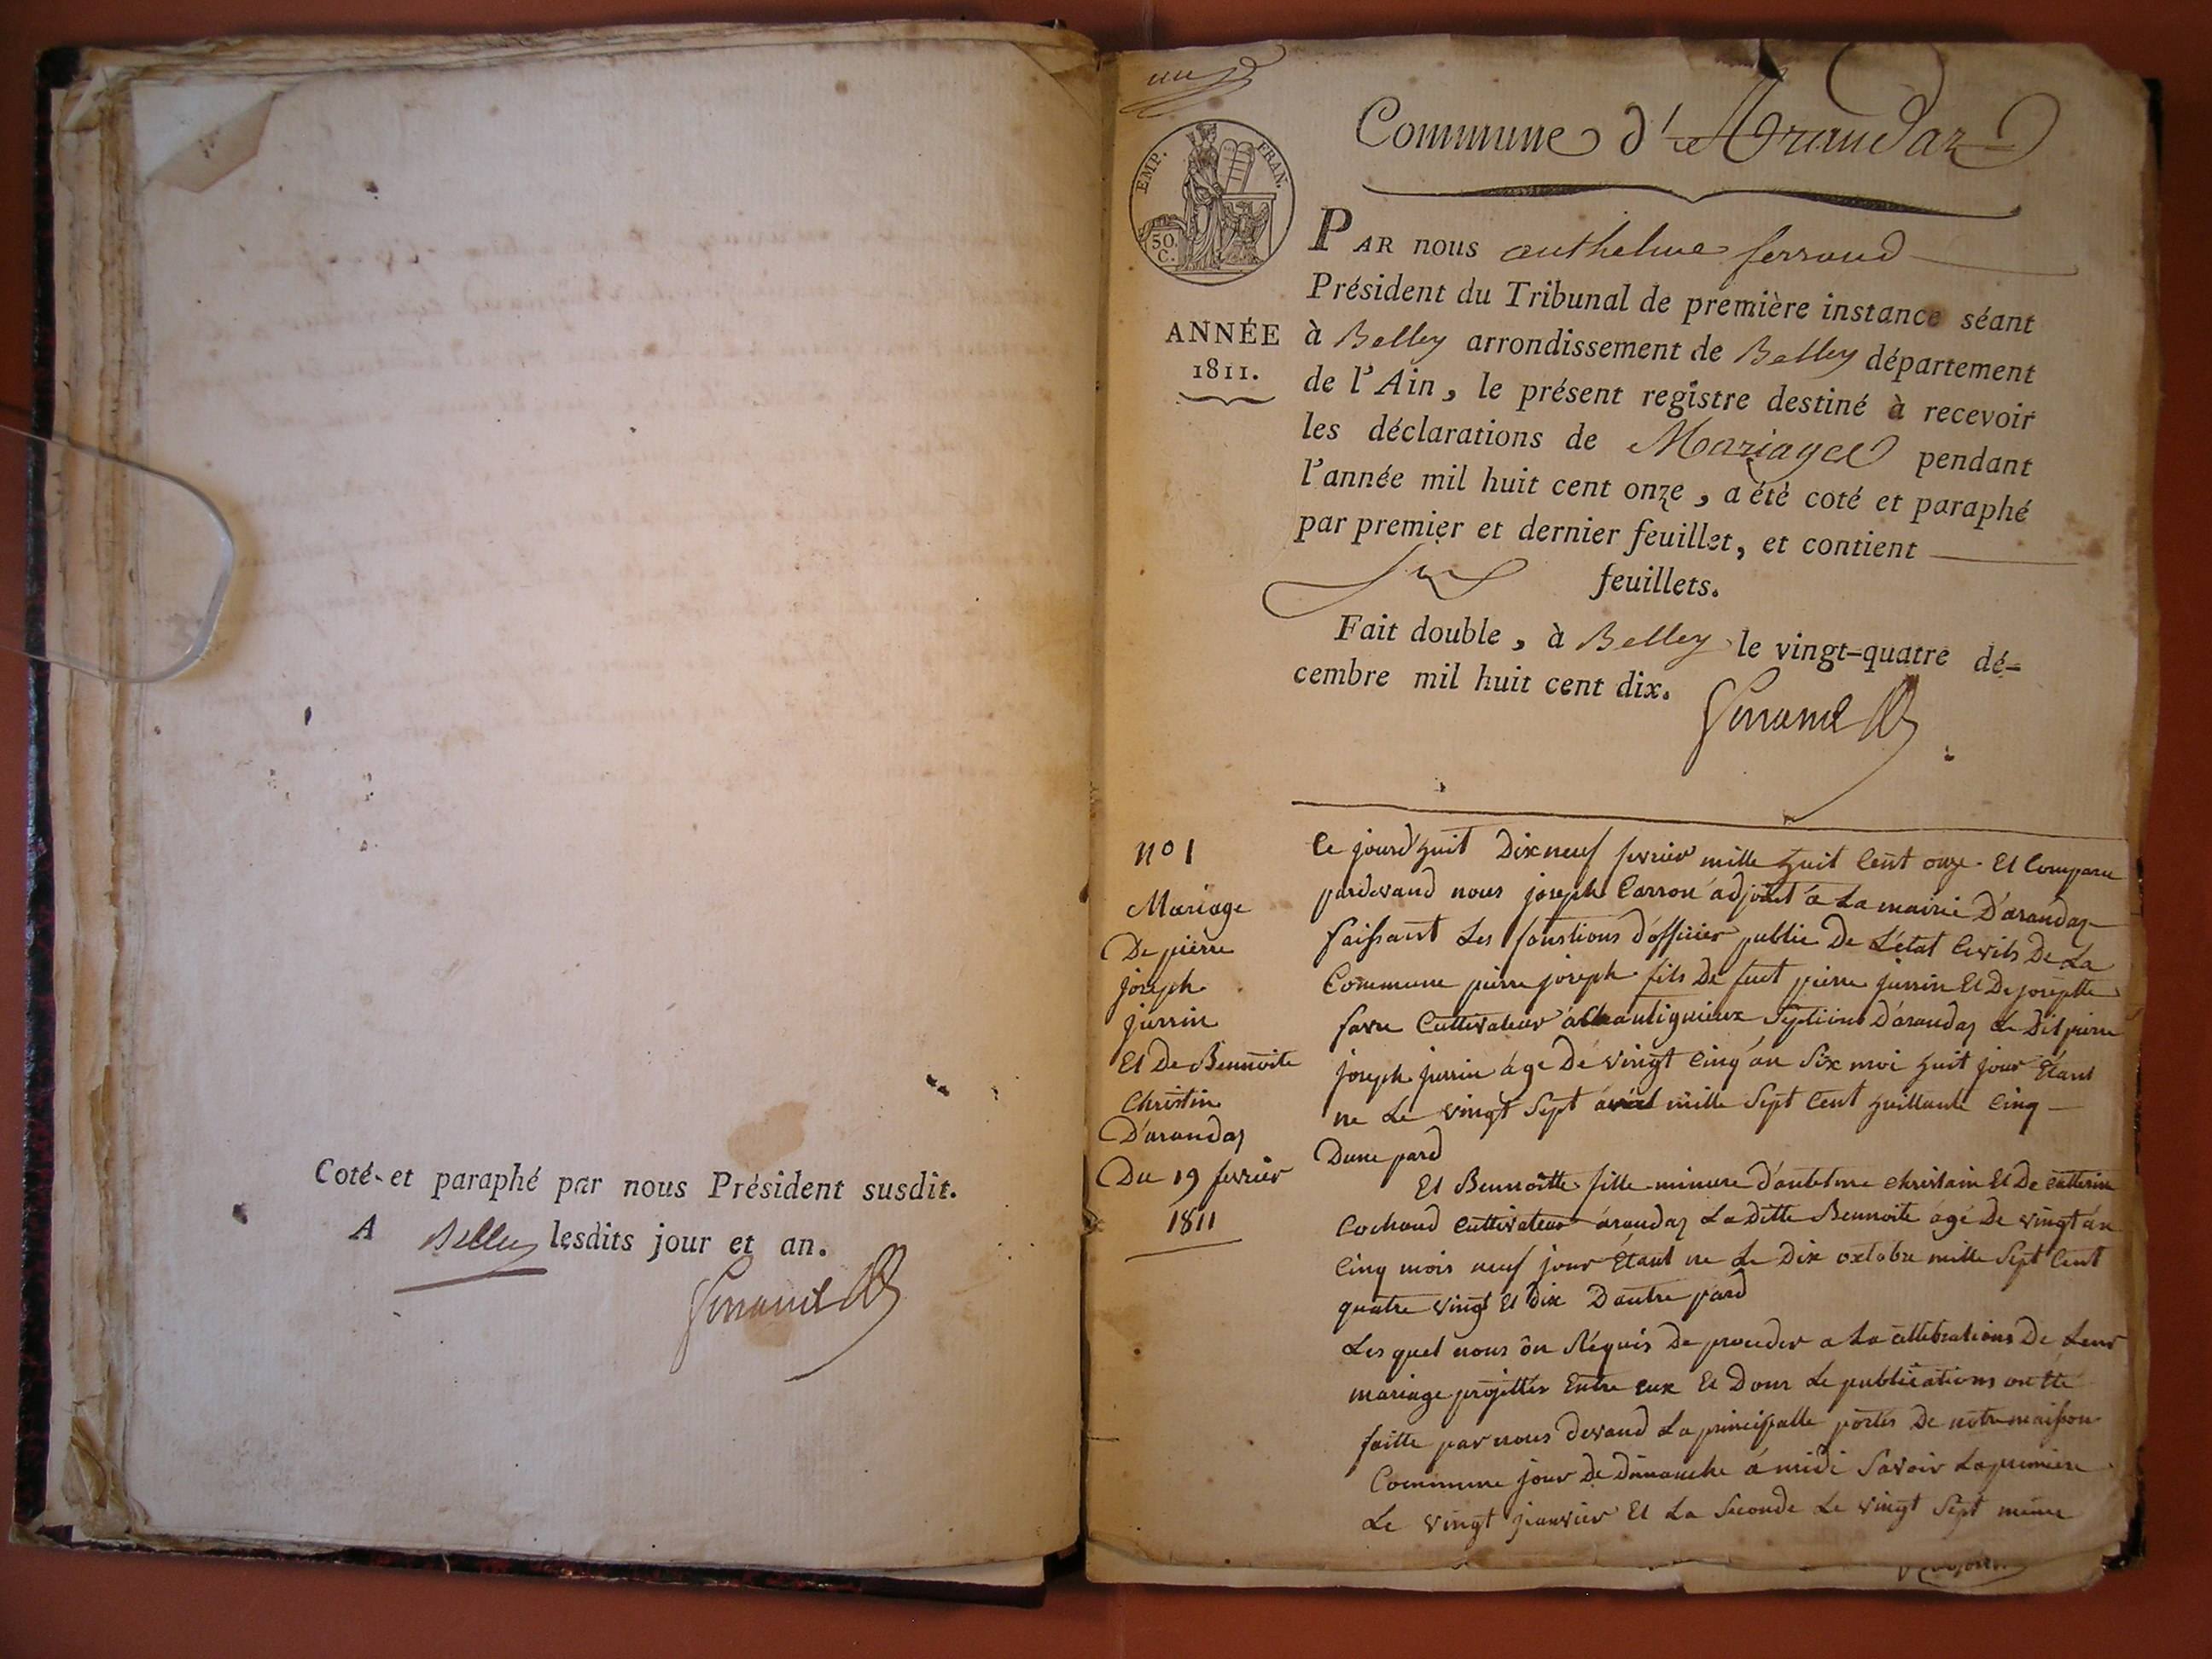 Coté et paraphé par nous Président susdit.
A Belley lesdits jour et an.
Ferrand
un
EMP. FRAN.
50
C.
Commune d'Arandaz
ANNÉE
1811.
PAR nous anthelme ferrand
Président du Tribunal de première instance séant
à Belley arrondissement de Belley département
de l'Ain, le présent registre destiné à recevoir
les déclarations de Mariages pendant
l'année mil huit cent onze, a été coté et paraphé
par premier et dernier feuillet, et contient
six feuillets.
Fait double, à Belley le vingt-quatre dé-
cembre mil huit cent dix.
Ferrand
n° 1
Mariage
De pierre
joseph
jurrin
Et De Bennoite
Christin
D'arandaz
Du 19 fevrier
1811
Ce jourd'huit Dixneuf fevrier mille huit Cent onze Et Comparu
pardevand nous joseph Carron adjoint a La mairie D'arandaz
faissant Les fonstions d'officier public De L'état Civils De La
Commune pierre joseph fils De fuct pierre jurrin Et De josephte
favre Cultivateur a Chantiguieux Septions D'arandaz Le Dit pierre
joseph jurrin âge De vingt Cinq an Six moi huit jour Etant
ne Le vingt Sept avril mille Sept Cent huittante Cinq
Dune pard
Et Bennoitte fille mineure d'antelme christain Et De catterine
Cochoud Cultivateur arandaz La Ditte Bennoite agé De vingt an
Cinq mois neuf jour Etant ne Le Dix octobre mille Sept Cent
quatre vingt Et Dix Dautre pard
Les quel nous ôn Réquis De proceder a La cellebrations De Leur
mariage projetter Entre eux Et Donr Le publications on tté
faitte par nous devand La principalle portes De notre maisson
Commune jour De dimanche a midi Savoir La premiere
Le vingt janvier Et La Seconde Le vingt Sept meme